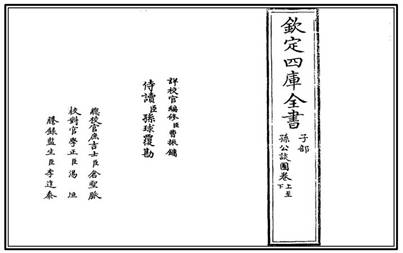 欽定四庫全書
子部
孫公談圃卷上至下
詳校官編修臣曹振鏞
侍讀臣孫球覆勘
總校官庶吉士臣倉聖脈
校對官學正臣湯垣
謄錄監生臣李逢泰